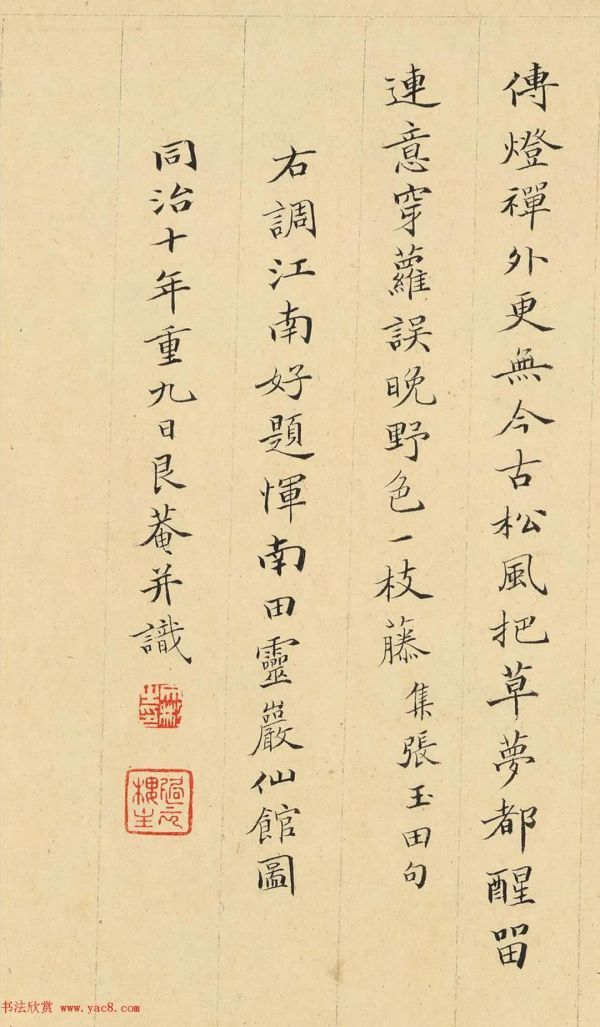 傳燈禪外更無今古松風把草夢都醒留
連意穿蘿誤晚野色一枝藤 集張玉田句
右調江南好題惲南田靈巖仙館圖
同治十年重九日艮菴并識
過雲
樓主
书法欣赏 www.yac8.com